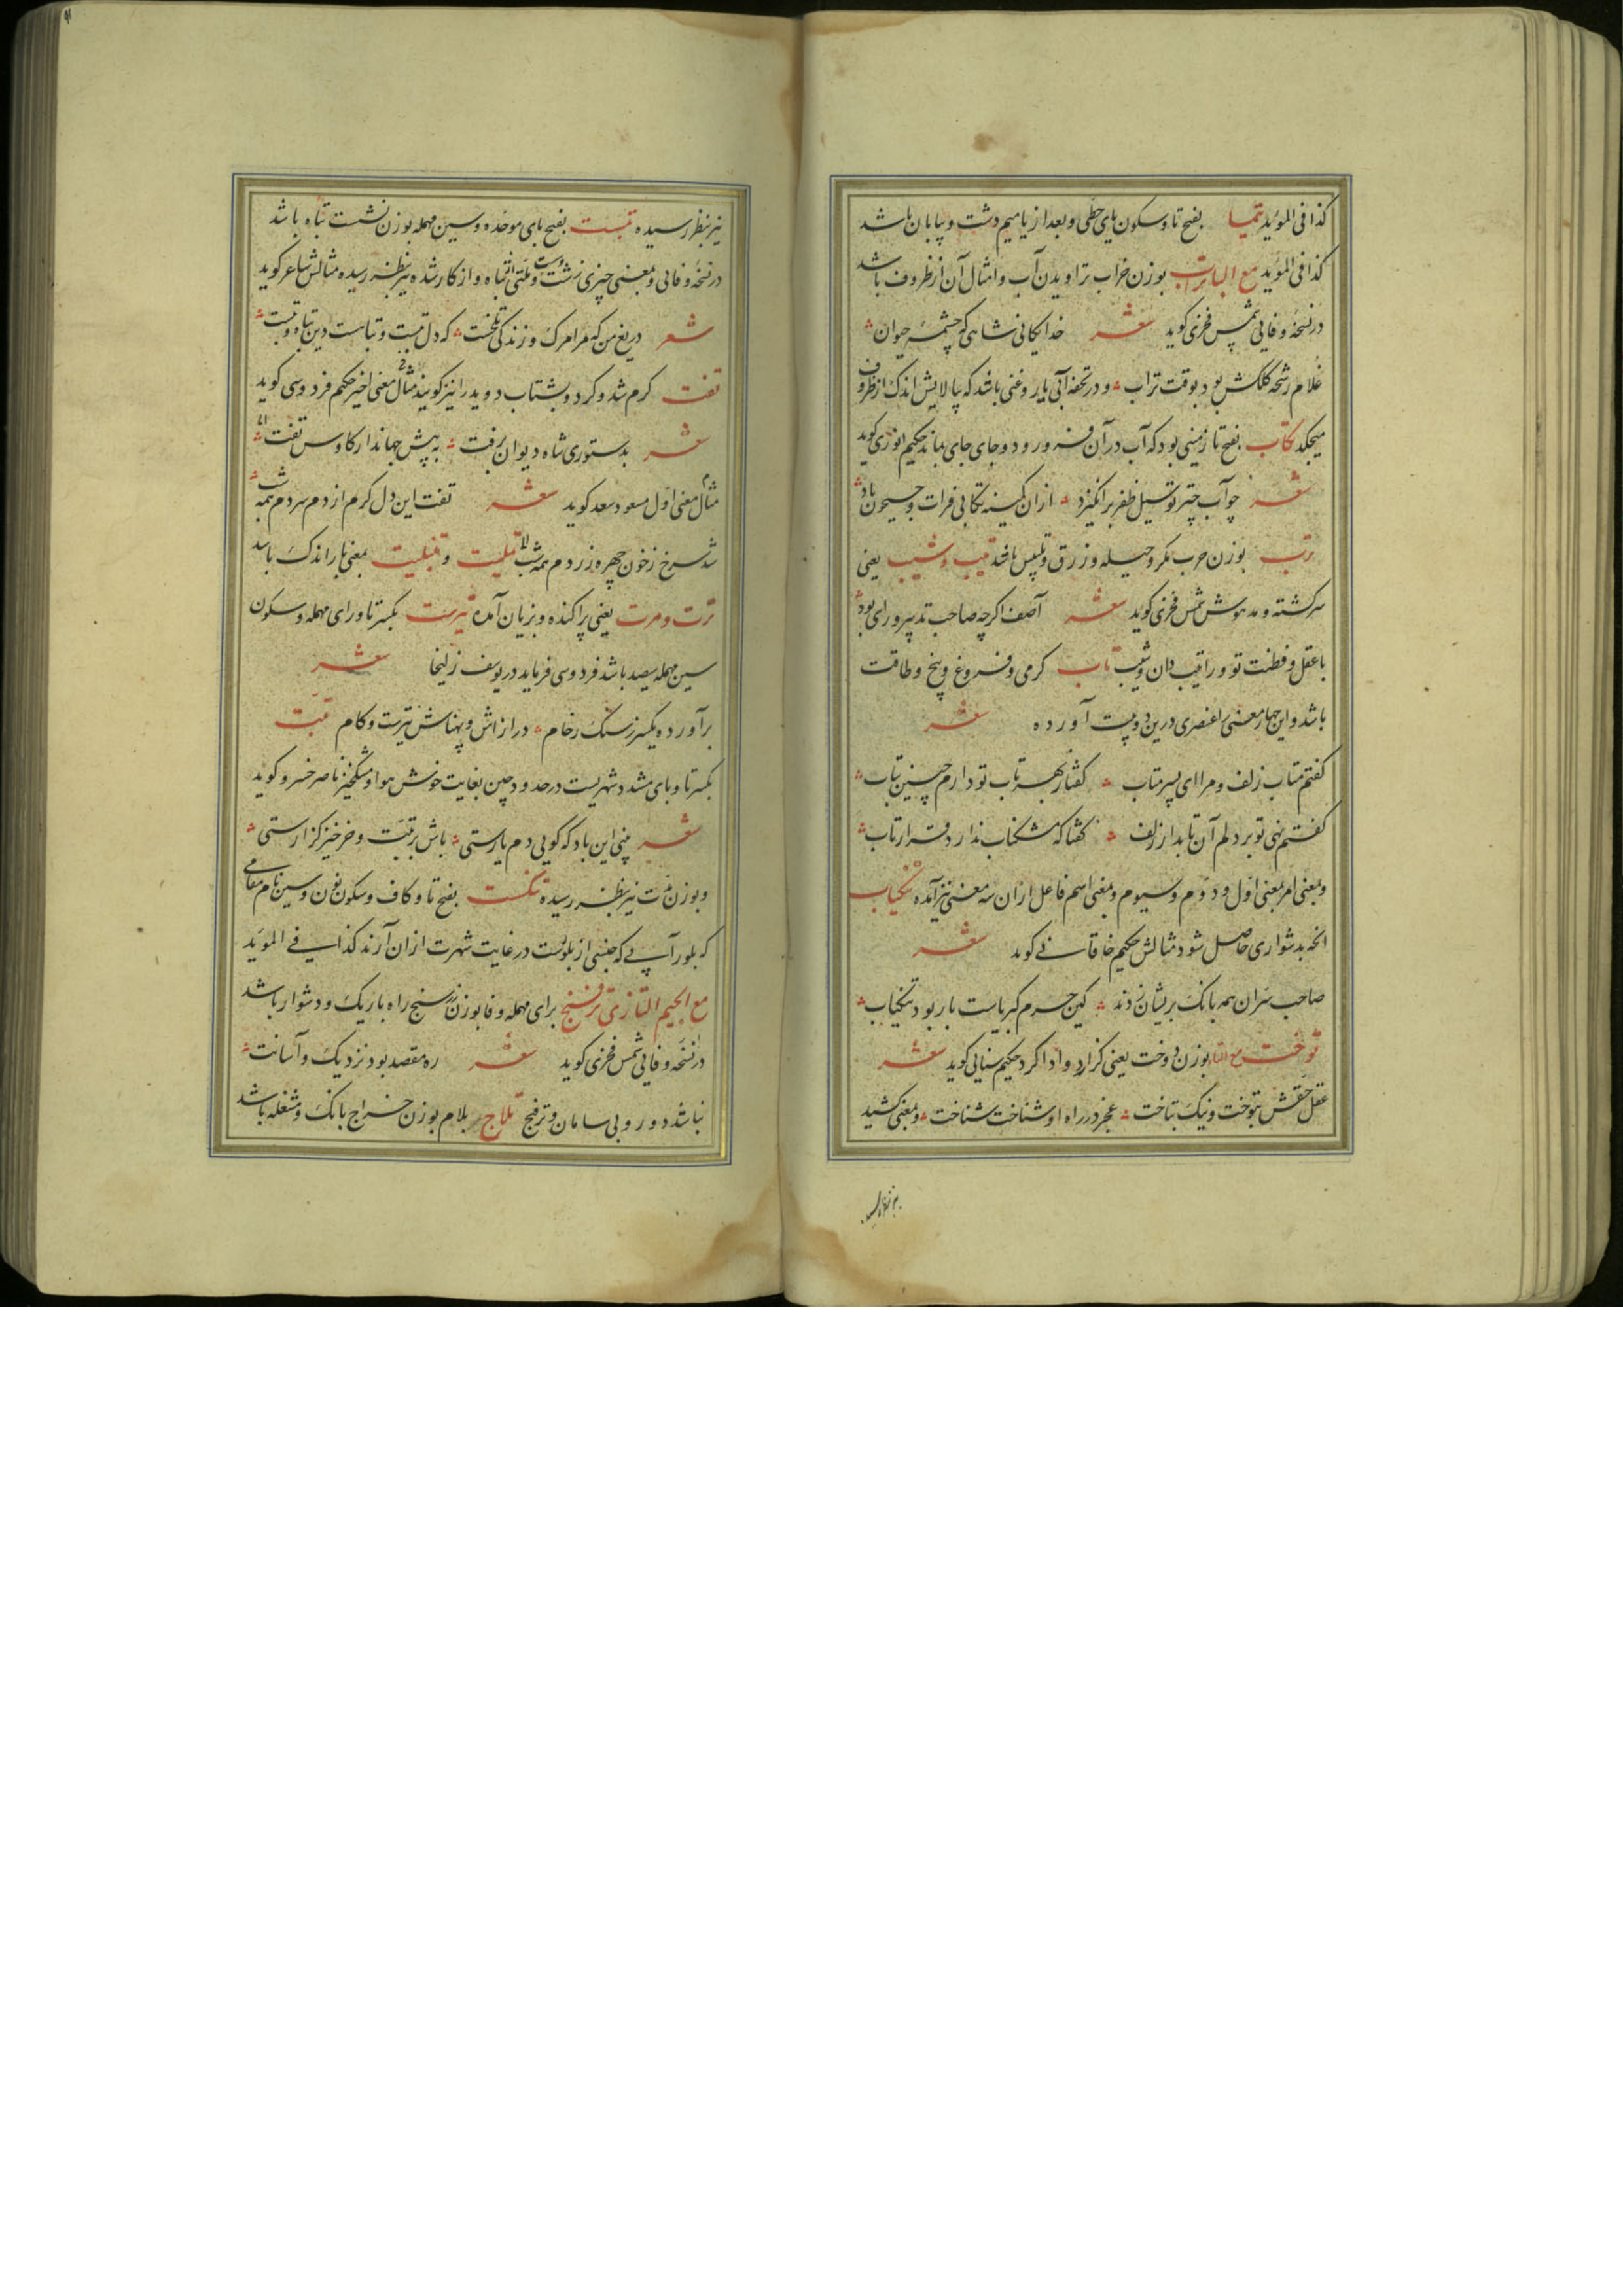 کذا فی المؤید تیما بفتح تا و سکون یای حطی و بعد از یا میم دشت و بیابان باشد
کذا فی المؤید مع البا تراب بوزن خراب تراویدن آب و امثال آن از ظروف باشد
در نسخهٔ وفایی شمس فخری کوید شعر خدایکانی شاهی که چشمهٔ حیوان
غلام رشحهٔ کلکش بود بوقت تراب و در تحفه آبی یا روغنی باشد که بپالایش اندک از ظروف
میچکد تکاب بفتح تا زمینی بود که آب در آن فرو رود و جای جای بماند حکیم انوری کوید
شعر چو آب چتر تو سیل ظفر برانگیزد از ان کمینه تکابی فرات و جیحون باد
ترب بوزن حرب مکر و حیله و زرق و تلبیس باشد تیب و شیب یعنی
سرکشته و مدهوش شمس فخری کوید شعر آصف اکرچه صاحب تدبیر و رای بود
با عقل و فطنت تو ورا تیب دان و شیب تاب کرمی و فروغ و پیچ و طاقت
باشد و این چهار معنی را عنصری درین دو بیت آورده شعر
کفتم متاب زلف و مرا ای پسر متاب کفتا ز بهر تاب تو دارم چنین بتاب
کفتم نهی تو بر دلم آن تابدار زلف کفتا که مشکناب ندارد قرار تاب
و بمعنی امر بمعنی اول و دوم و سیوم و بمعنی اسم فاعل از ان سه معنی نیز آمده تنکیاب
انچه بدشواری حاصل شود مثالش حکیم خاقانی کوید شعر
صاحب سران همه بانک بریشان زدند کین حرم کبریاست بار بود تنکیاب
توخت مع التا بوزن دوخت یعنی کزارد و ادا کرد حکیم سنایی کوید شعر
عقل حقش بتوخت و نیک بتاخت عجز در راه او شناخت شناخت و بمعنی کشید
نیز بنظر رسیده تبست بفتح بای موحده و سین مهمله بوزن نشست تباه باشد
در نسخهٔ وفایی و بمعنی چیزی زشت و تباه و از کار شده نیز بنظر رسیده مثالش شاعر کوید
شعر دریغ من که مرا مرک و زندکی تلخست که دل تبست و تباهست دین تباه و تبست
تفت کرم شد و کرد و بشتاب دوید را نیز کویند مثال معنی اخیر حکیم فردوسی کوید
شعر بدستوری شاه دیوان برفت به پیش جهاندار کاوس تفت
مثال معنی اول مسعود سعد کوید شعر تفت این دل کرم از دم سردم همه شب
شد سرخ ز خون چهره زردم همه شب تبلیت و تفیلیت بمعنی بار اندک باشد
ترت و مرت یعنی پراکنده و بزیان آمده تیرست بکسر تا و رای مهمله و سکون
سین مهمله سیصد باشد فردوسی فرماید در یوسف زلیخا شعر
برآورده یکسر ز سنک رخام درازاش و پهناش تیرست و کام تبت
بکسر تا و بای مشدد شهریست در حدود چین بغایت خوش هوا و مشکخیز ناصر خسرو کوید
شعر بینی این باد که کویی دم یارستی باش بر تبت و خرخیز کزارستی
و بوزن مدت نیز بنظر رسیده تنکست بفتح تا و کاف و سکون نون و سین نام مقامی
که بلور آبی که جنسی از بلورست در غایت شهرت از ان آرند کذا فی المؤید
مع الجیم التازی ترفنج برای مهمله و فا بوزن سنج راه باریک و دشوار باشد
در نسخه وفایی شمس فخری کوید شعر ره مقصد بود نزدیک و آسانت
نباشد دور و بی سامان و ترفنج تلاج بلام بوزن خراج بانک و مشغله باشد